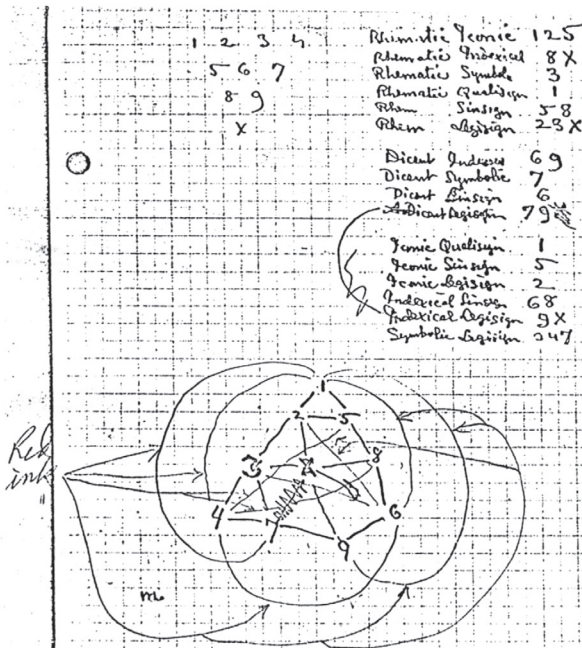 1 2 3 4
5 6 7
8 9
X
Rhematic Iconic 1 2 5
Rhematic Indexical 8 X
Rhematic Symbols 3
Rhematic Qualisign 1
Rhem Sinsign 5 8
Rhem Legisign 2 3 X
Dicent Indexes 6 9
Dicent Symbolic 7
Dicent Sinsign 6
Dicent Legisign 7 9
Iconic Qualisign 1
Iconic Sinsign 5
Iconic Legisign 2
Indexical Sinsign 6 8
Indexical Legisign 9 X
Symbolic Legisign 3 4 7
1
2 5
3 X 8
4 7 6
9
Red
ink
m